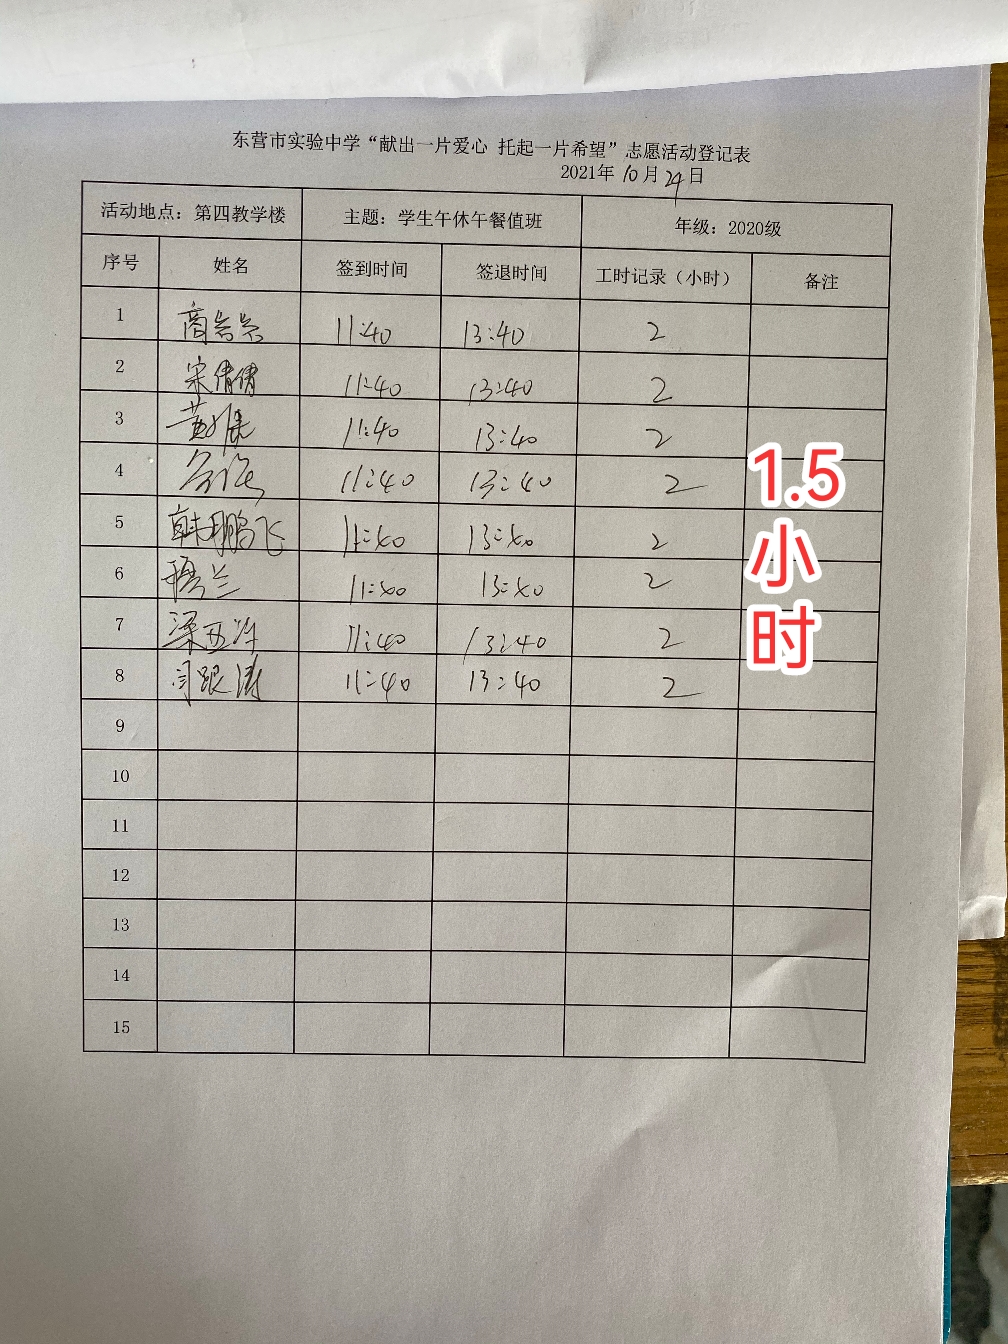 东营市实验中学“献出一片爱心 托起一片希望”志愿活动登记表
2021年 10月 24日
活动地点：第四教学楼 主题：学生午休午餐值班 年级：2020级
序号 姓名 签到时间 签退时间 工时记录（小时） 备注
1 商 11:40 13:40 2
2 宋倩倩 11:40 13:40 2
3 11:40 13:40 2
4 11:40 13:40 2
5 韩鹏飞 11:40 13:40 2
6 穆兰 11:40 13:40 2
7 梁 11:40 13:40 2
8 11:40 13:40 2
9
10
11
12
13
14
15
1.5
小
时